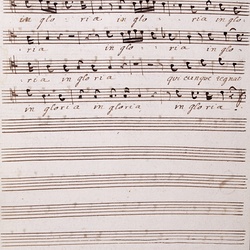 in glo ria in glo
ria in glo ria in glo
ria in gloria qui cunque regnat
in gloria in gloria in gloria